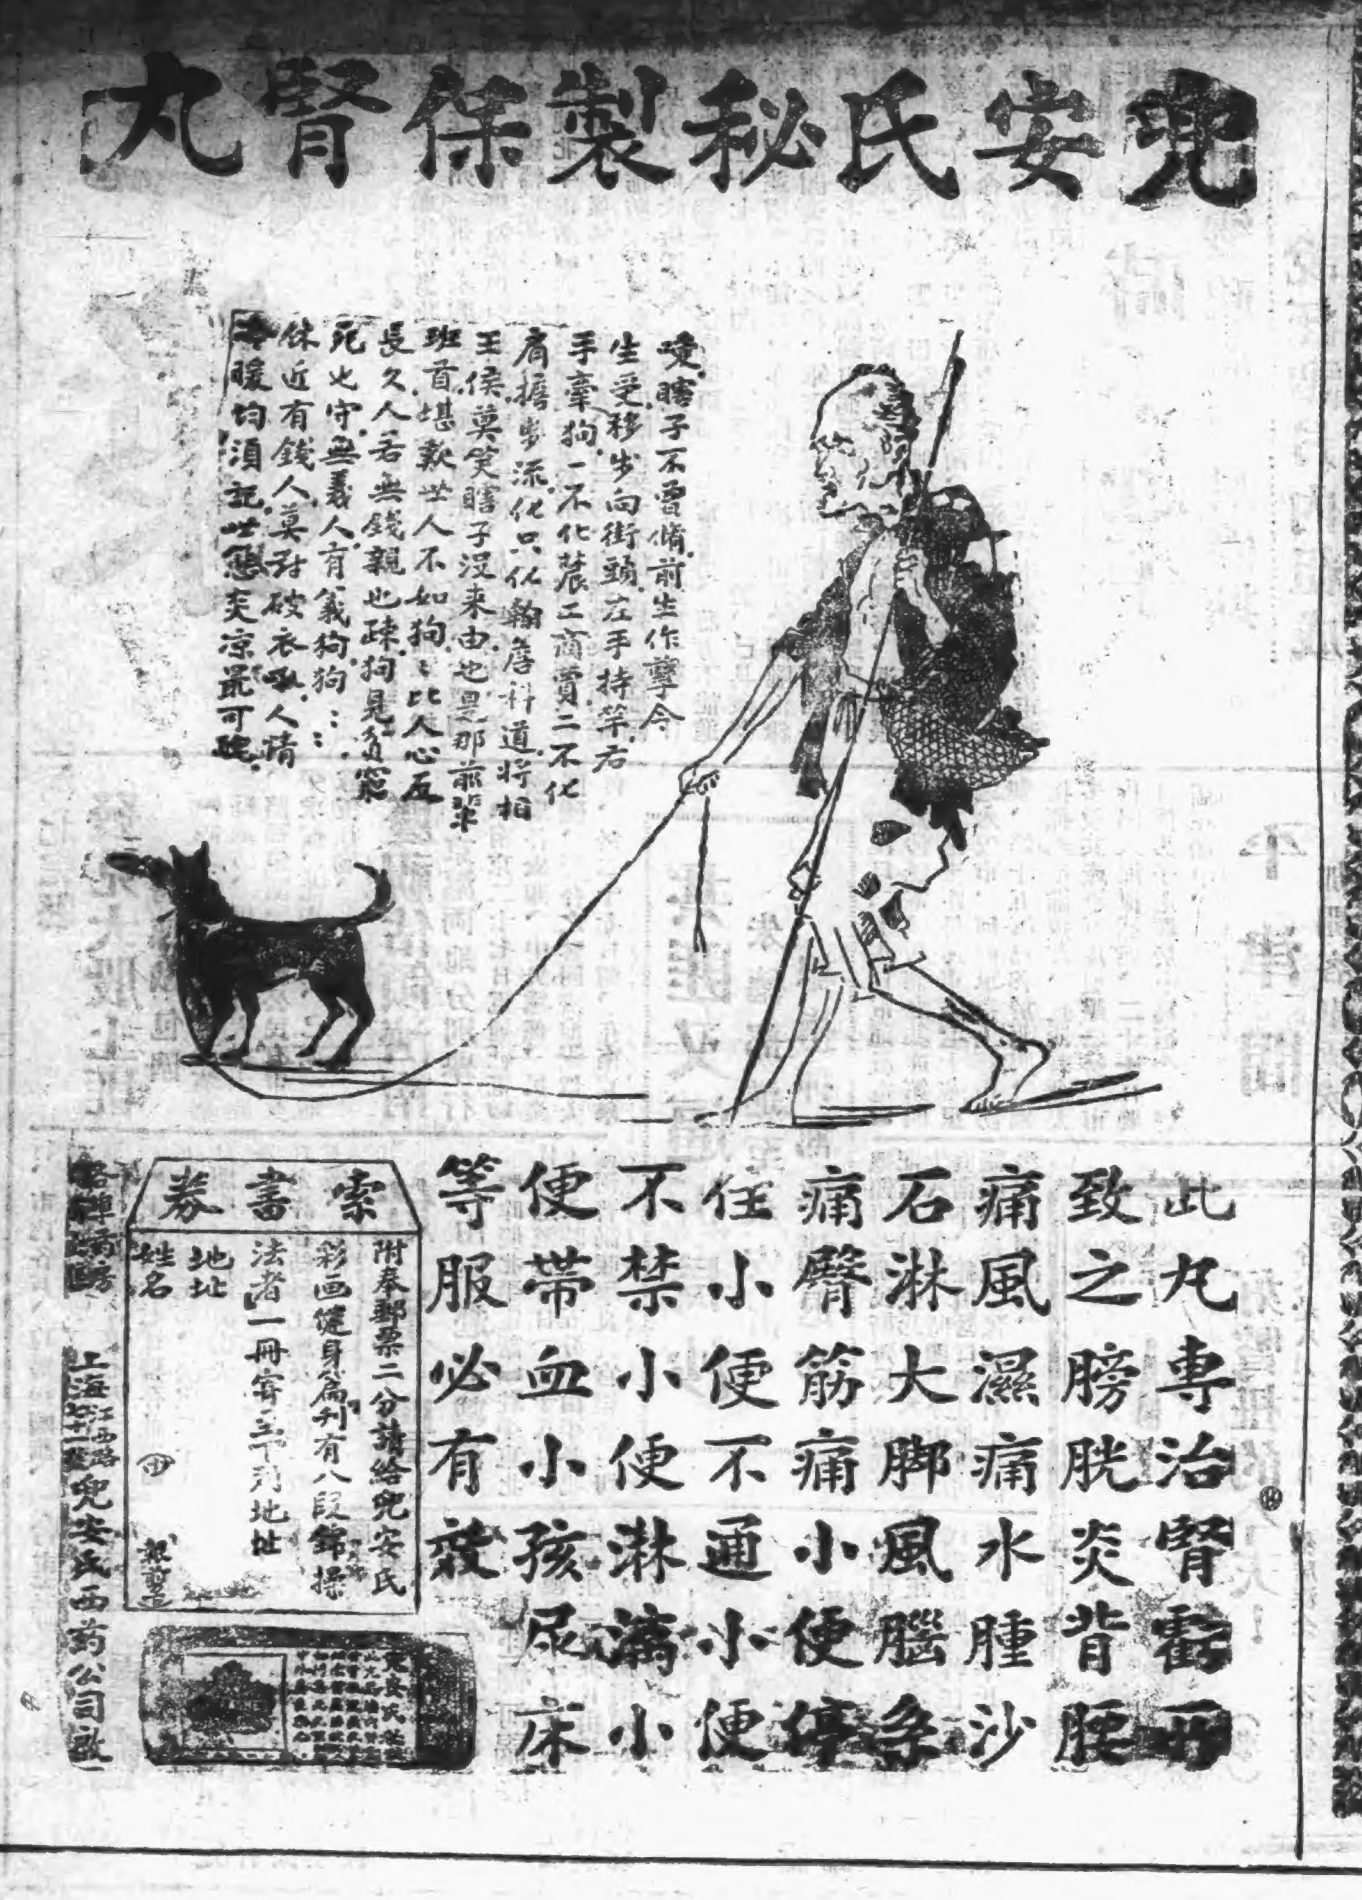 兜安氏秘製保腎丸
嗳瞎子不曾脩前生作孽今
生受移步向街頭左手持竿右
手牽狗一不化農工商賈二不化
肩擔步流化只化翰詹科道將相
王侯莫笑瞎子沒来由也是那前輩
班首堪歎世人不如狗狗比人心反
長久人若無錢親也疎狗見貧窮
死也守無義人有義狗狗
休近有錢人莫對破衣吼人情
暖均須記世態炎凉最可
此丸專治腎虧而
致之膀胱炎背腰
痛風濕痛水腫沙
石淋大脚風腦系
痛臀筋痛小便停
住小便不通小小便
不禁小便淋漓小
便帶血小孩尿床
等服必有效
索書券
附奉郵票二分請給兜安氏
彩画健身篇刊有八段錦操
法者一冊寄至下列地址
地址
姓名
各埠藥房
上海江西路
兜安氏西药公司啟